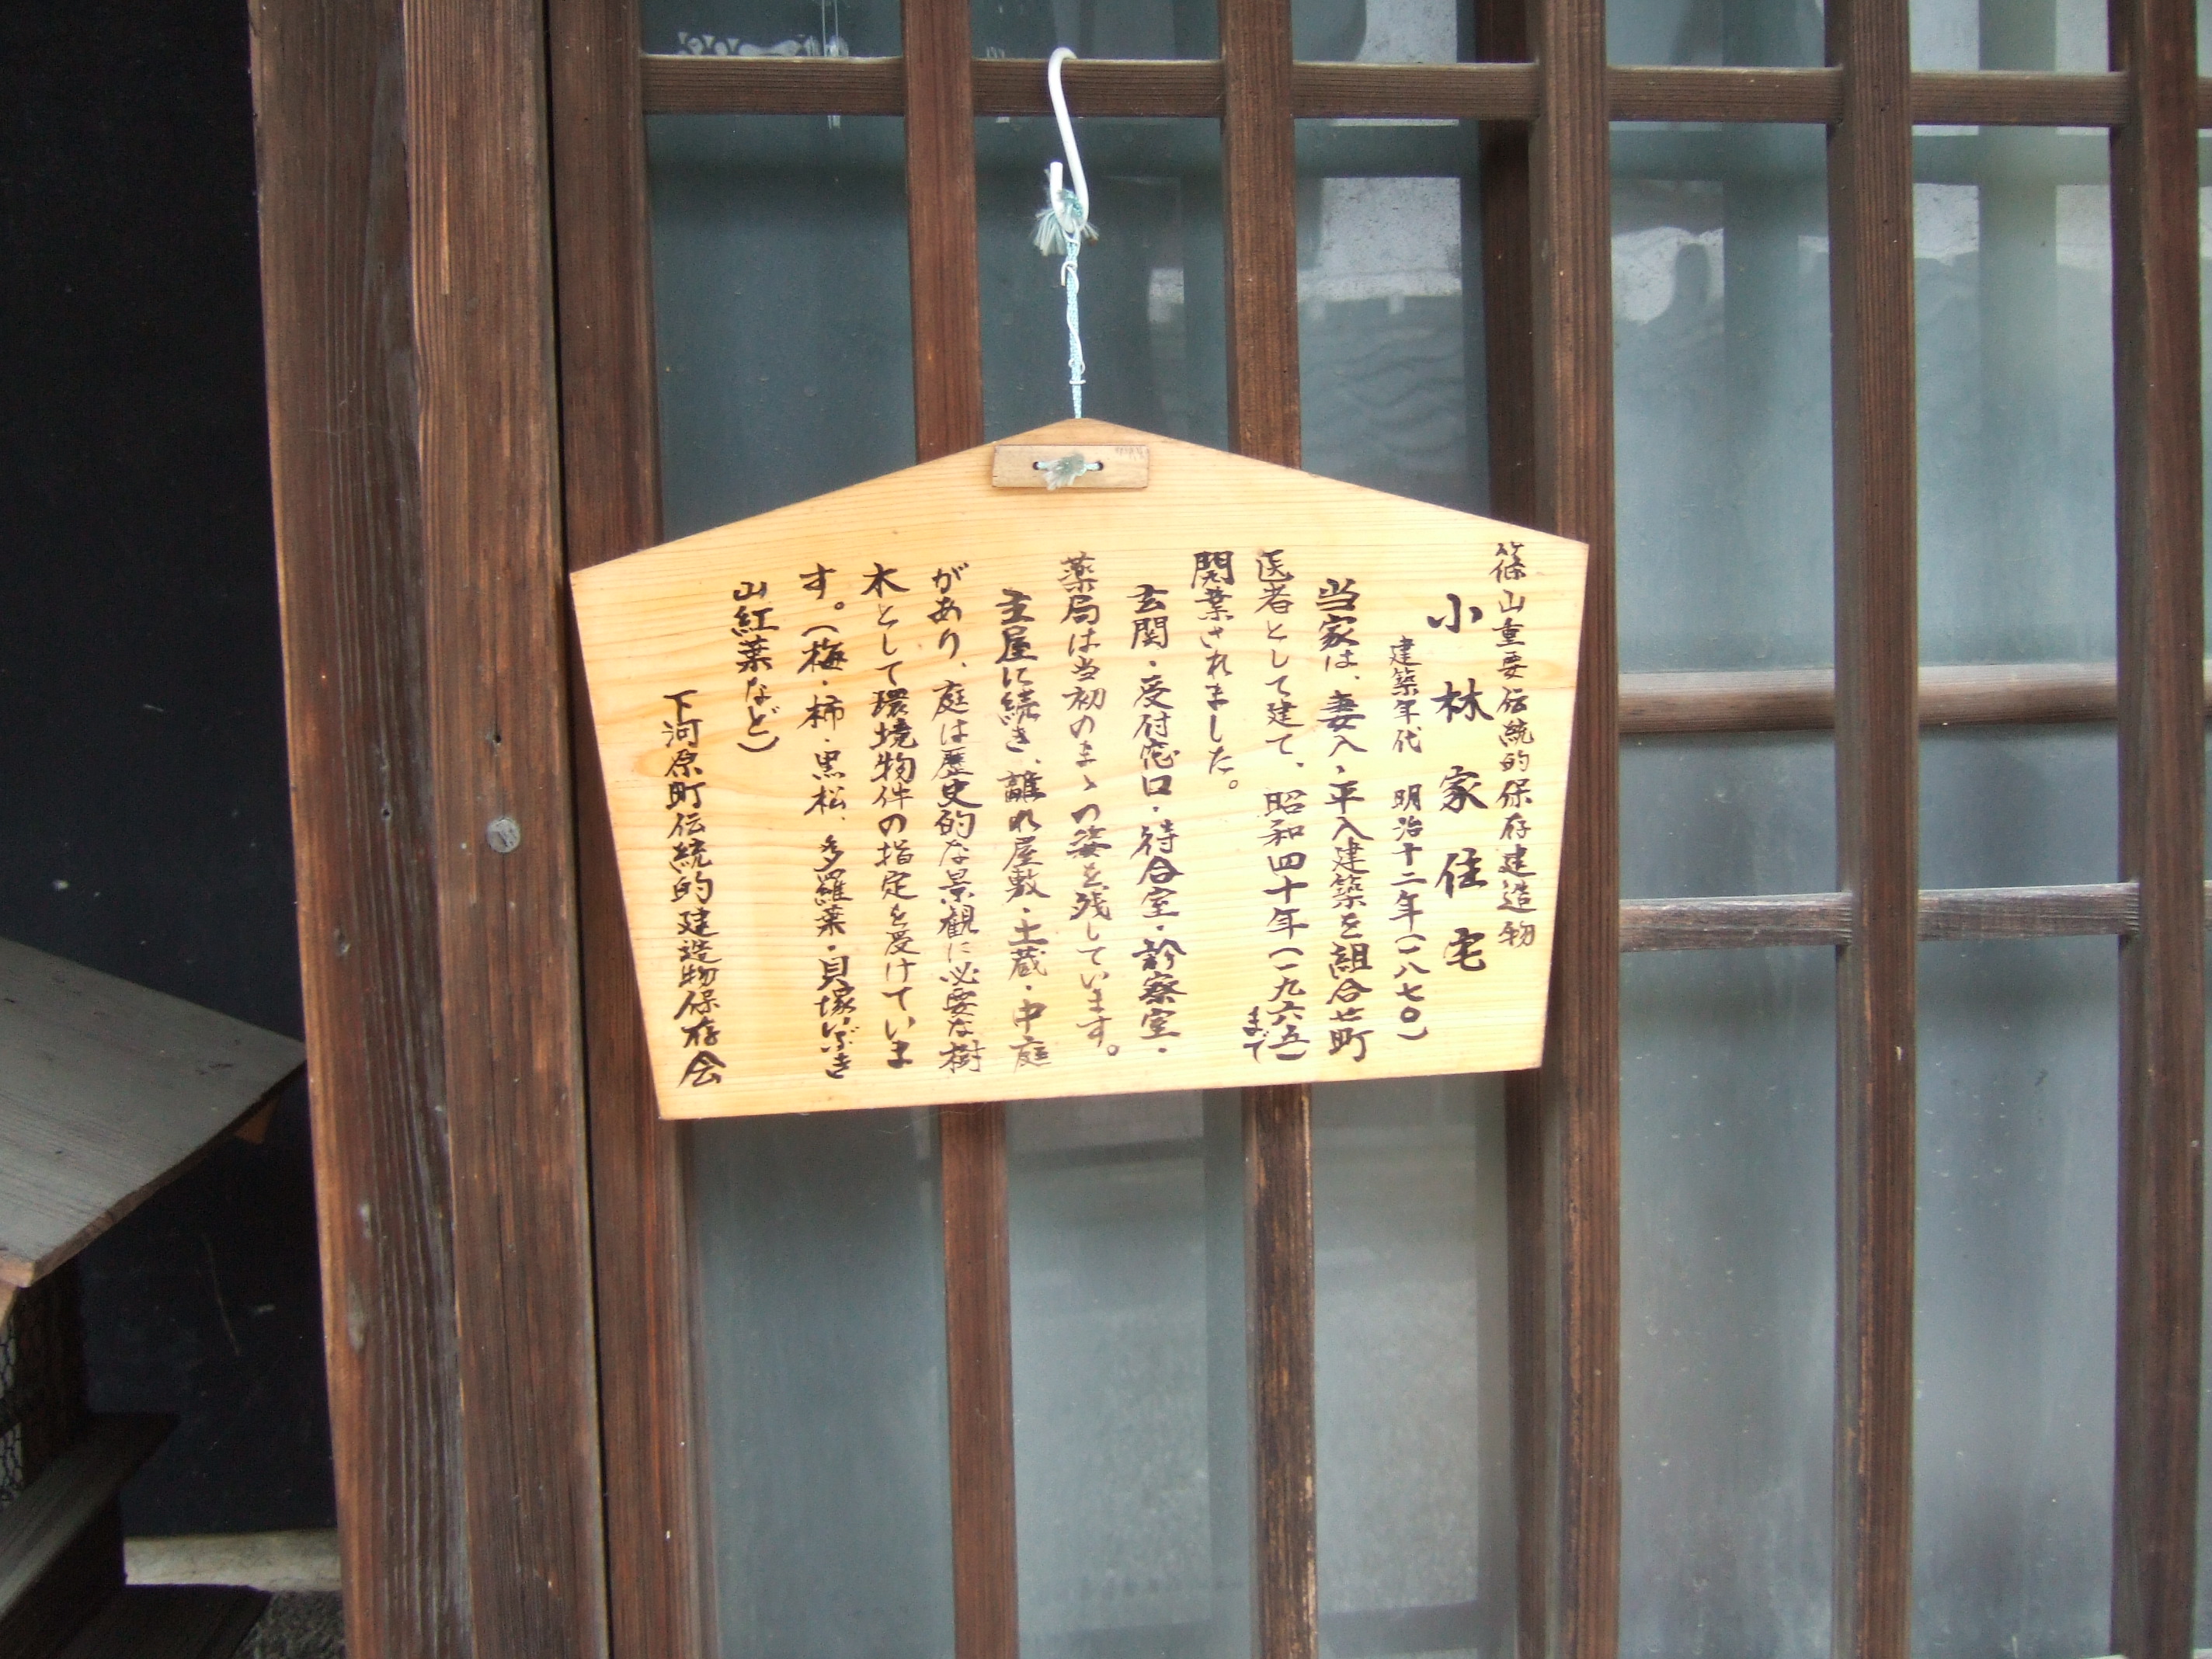 篠山重要伝統的保存建造物
小林家住宅
建築年代 明治十二年(一八七〇)
当家は、妻入、平入建築を組合せ町
医者として建て、昭和四十年(一九六五)まで
開業されました。
玄関・受付窓口・待合室・診察室・
薬局は当初のまゝの姿を残しています。
主屋に続き、離れ屋敷・土蔵・中庭
があり、庭は歴史的な景観に必要な樹
木として環境物件の指定を受けていま
す。(梅・柿・黒松、多羅葉・貝塚いぶき
山紅葉など)
下河原町伝統的建造物保存会